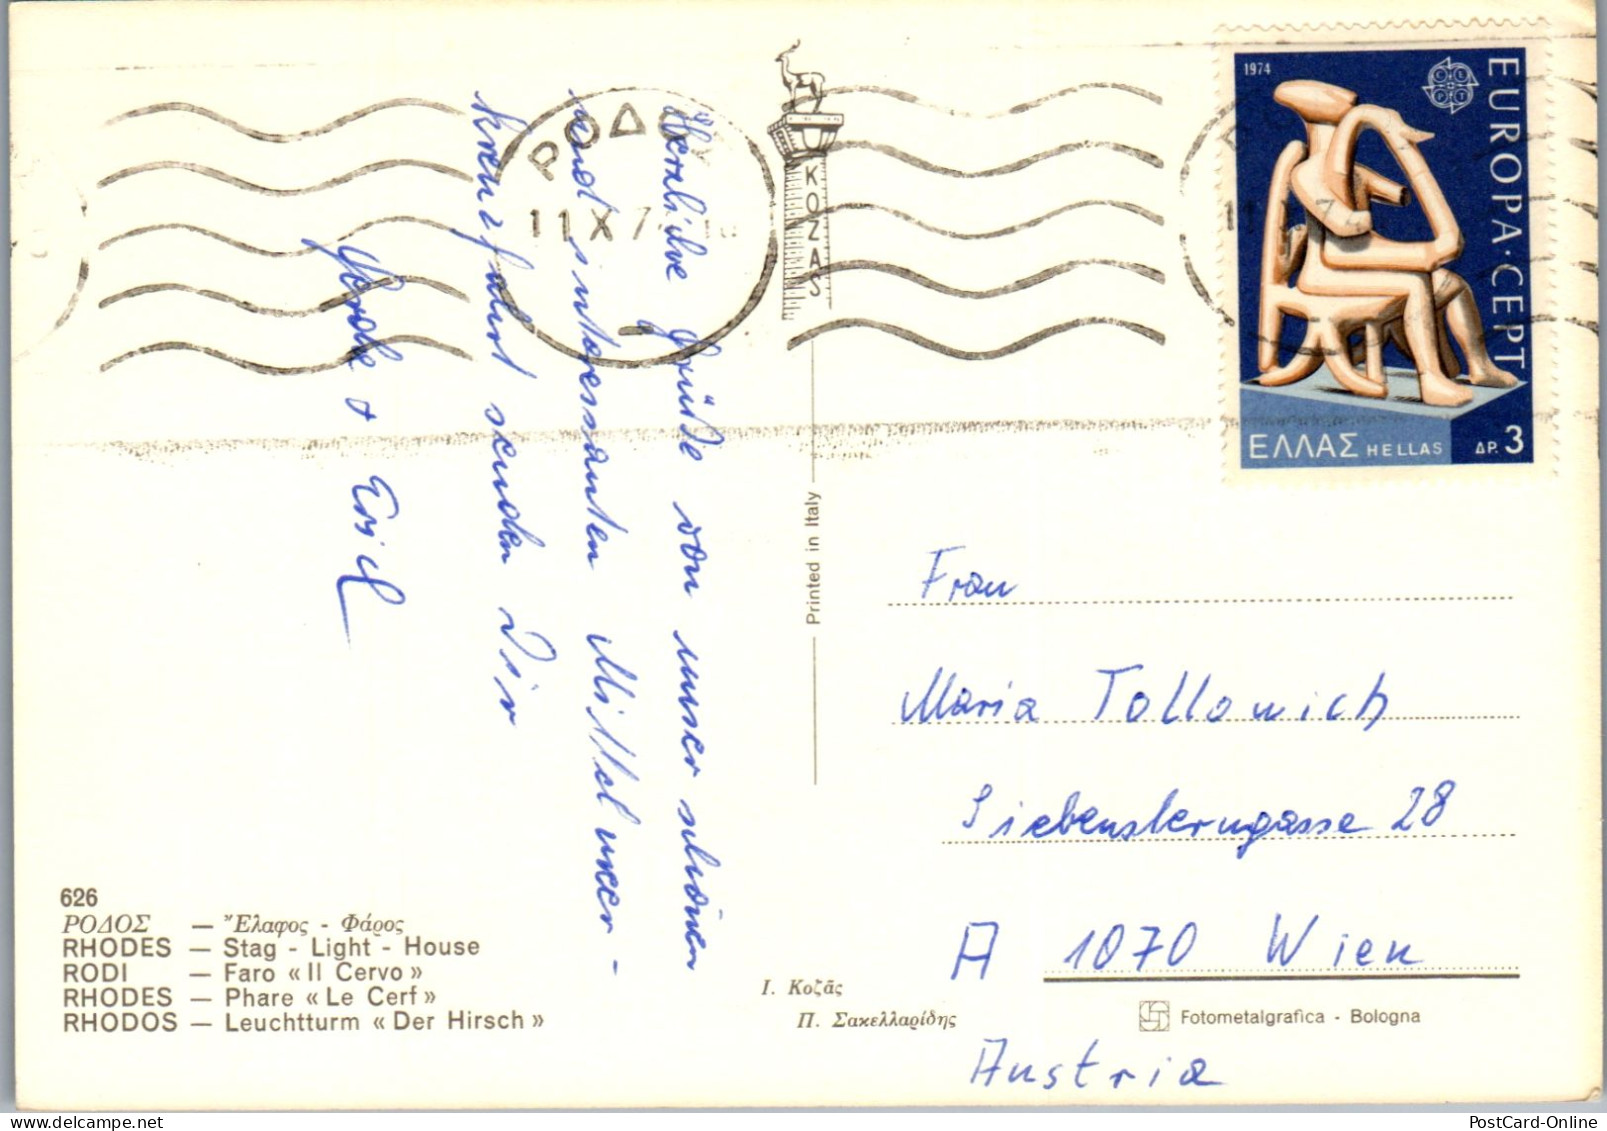 Herzliche Grüße von unser schönen
und interessanten Mittelmeer-
kreuzfahrt senden Dir
& Erich
ΡΟΔΟΣ
11 X 7
KOZAS
1974
EUROPA·CEPT
ΕΛΛΑΣ HELLAS ΔΡ. 3
Printed in Italy
Frau
Maria Tollowich
Siebensterngasse 28
A 1070 Wien
Austria
626
ΡΟΔΟΣ — Ἔλαφος - Φάρος
RHODES — Stag - Light - House
RODI — Faro « Il Cervo »
RHODES — Phare « Le Cerf »
RHODOS — Leuchtturm « Der Hirsch »
Ι. Κοζᾶς
Π. Σακελλαρίδης
Fotometalgrafica - Bologna
PostCard-Online